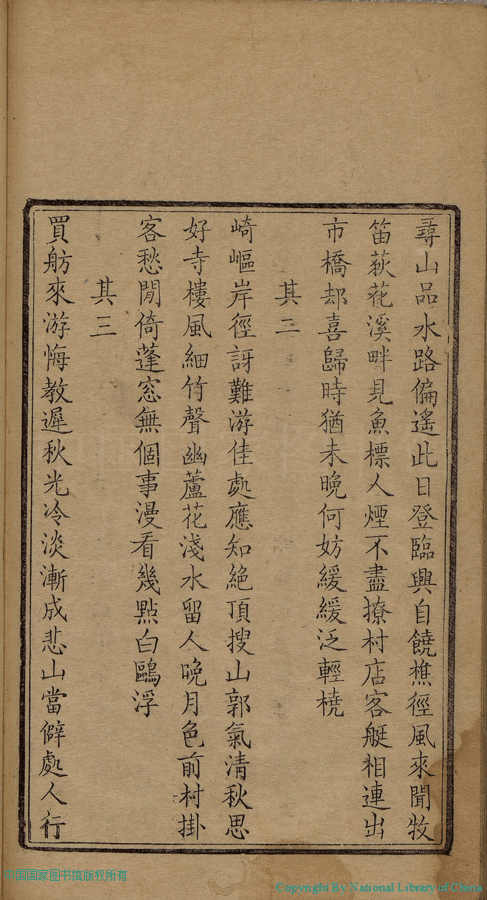 尋山品水路偏遙此日登臨興自饒樵徑風來聞牧
笛荻花溪畔見魚標人煙不盡撩村店客艇相連出
市橋却喜歸時猶未晚何妨緩緩泛輕橈
其二
崎嶇岸徑訝難游佳處應知絕頂搜山郭氣清秋思
好寺樓風細竹聲幽蘆花淺水留人晚月色前村掛
客愁閒倚蓬窓無個事漫看幾點白鷗浮
其三
買舫來游悔教遲秋光冷淡漸成悲山當僻處人行
国国家图书馆版权所有
Copyright By National Library of China